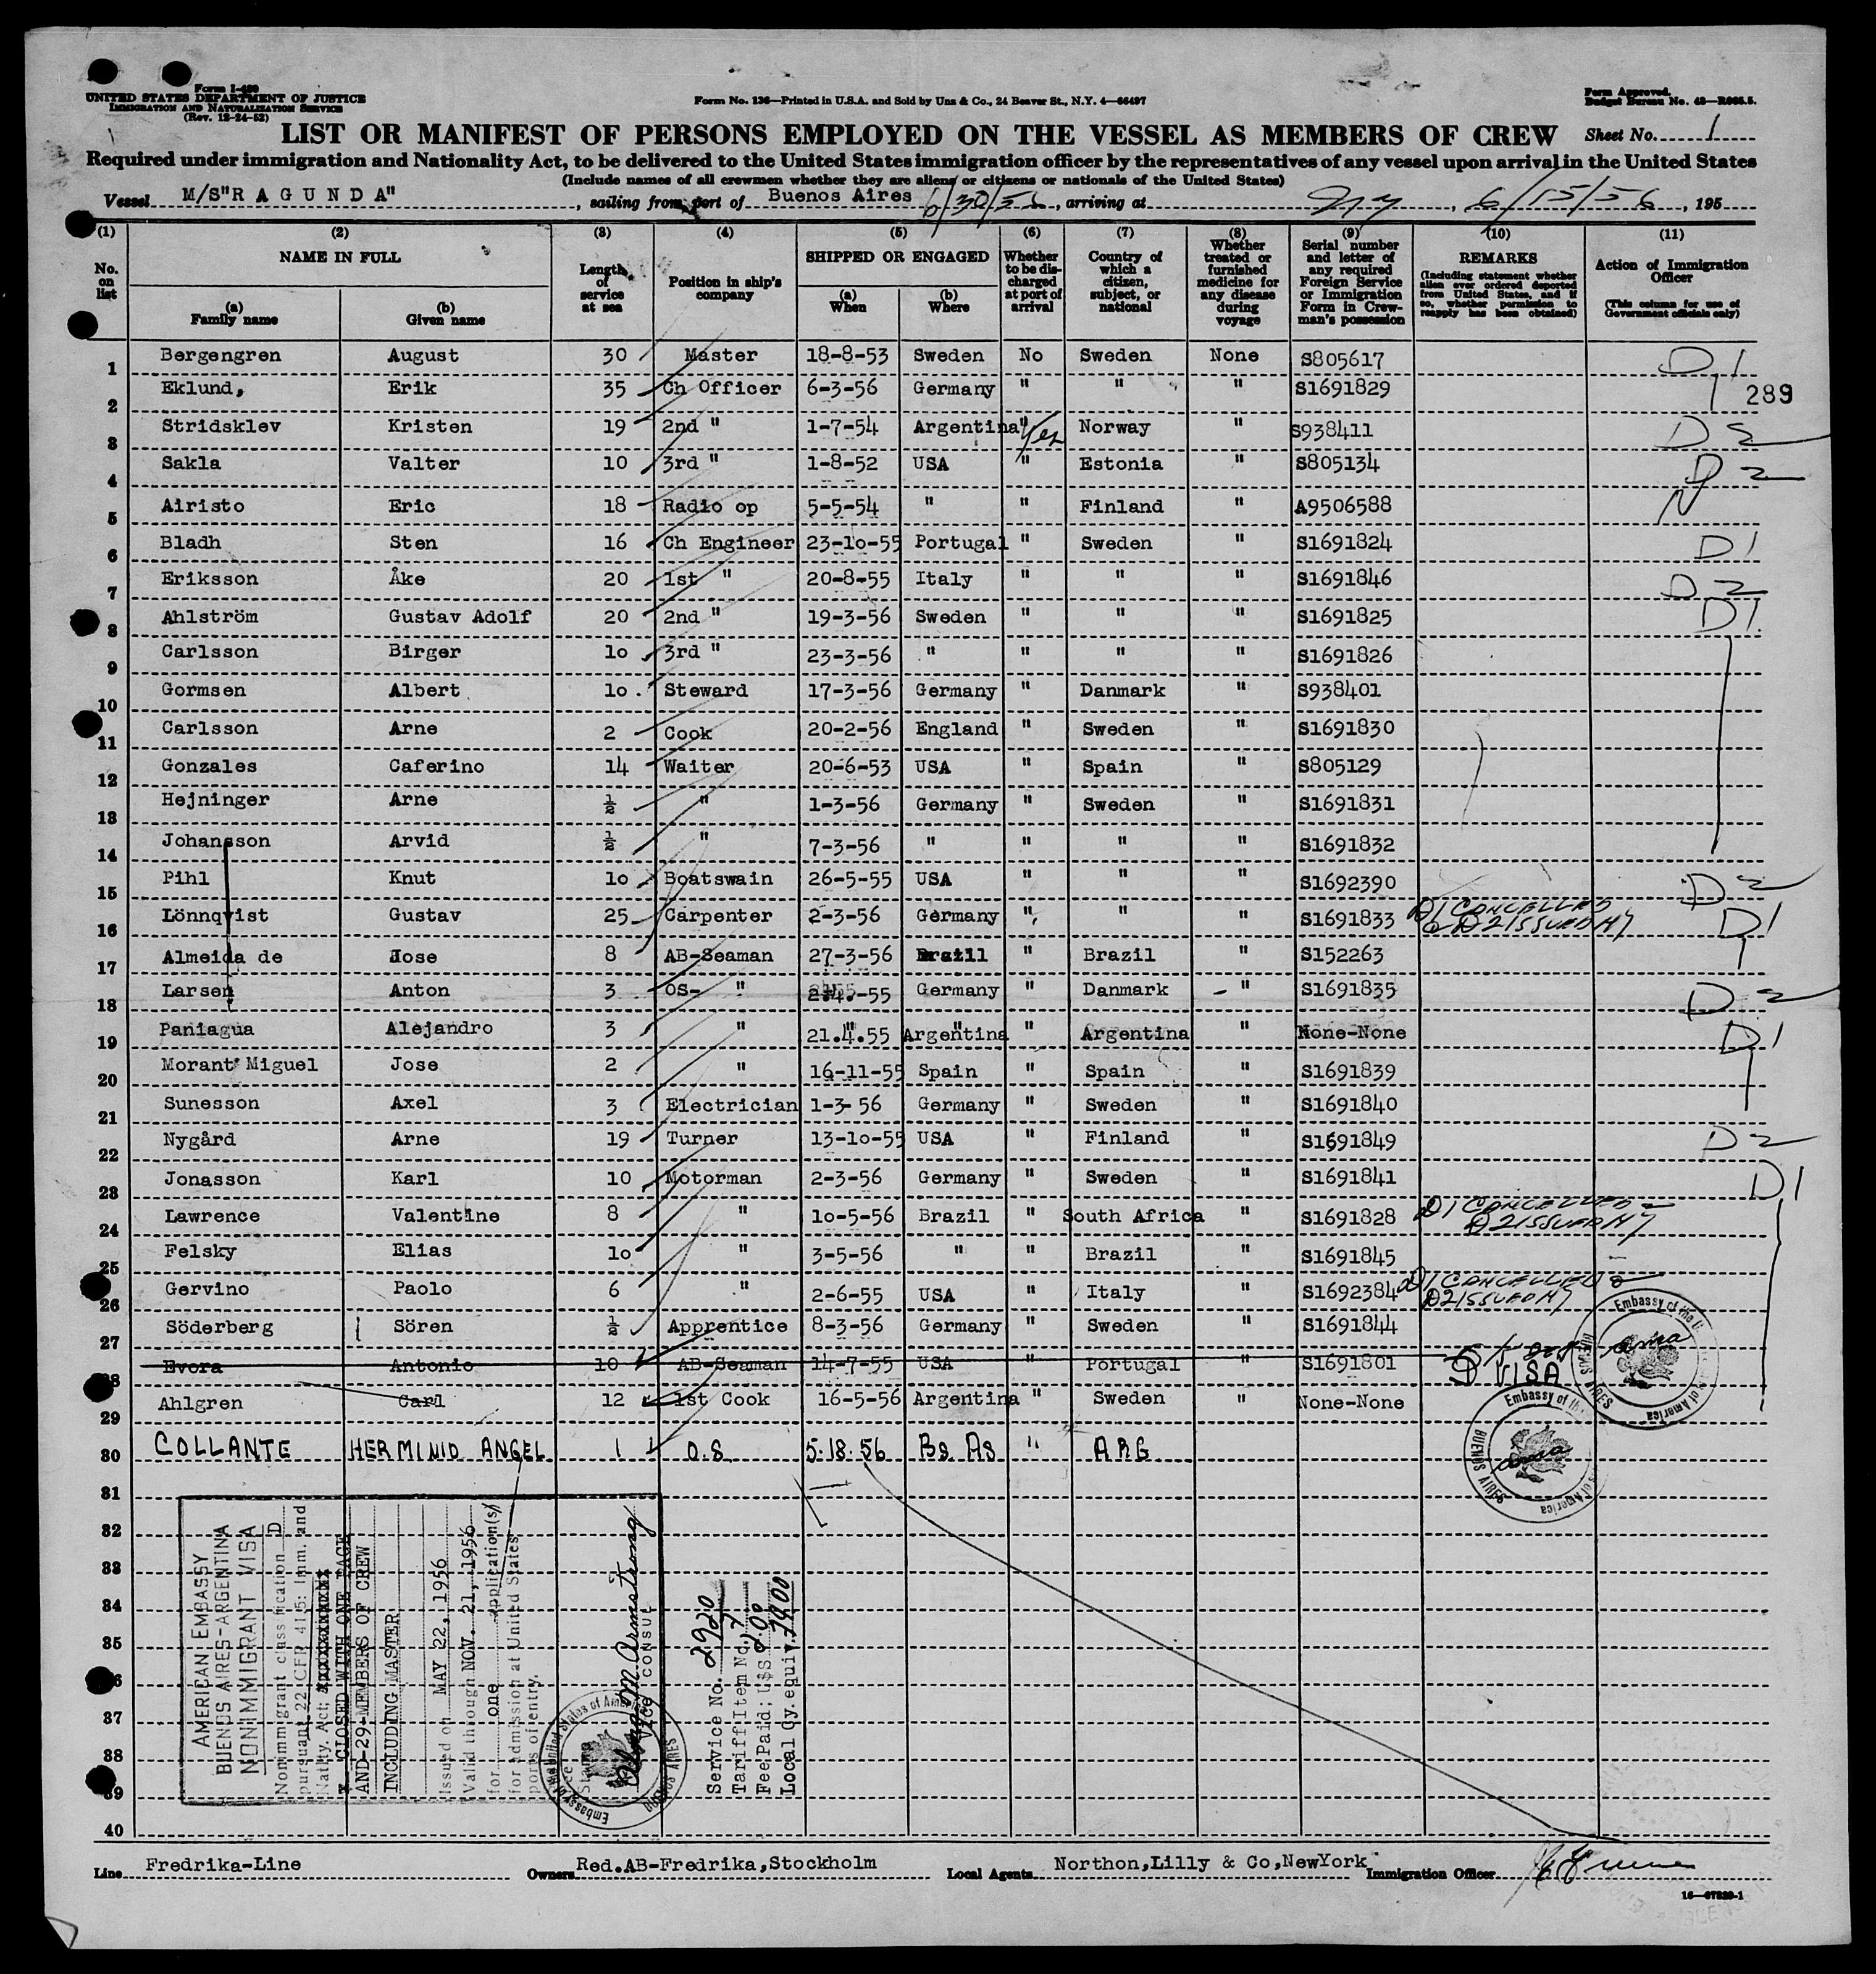 Form I-489
UNITED STATES DEPARTMENT OF JUSTICE
IMMIGRATION AND NATURALIZATION SERVICE
(Rev. 12-24-52)
Form No. 136—Printed in U.S.A. and Sold by Unz & Co., 24 Beaver St., N.Y. 4—66497
Form Approved.
Budget Bureau No. 43—R065.5.
LIST OR MANIFEST OF PERSONS EMPLOYED ON THE VESSEL AS MEMBERS OF CREW
Sheet No. 1
Required under immigration and Nationality Act, to be delivered to the United States immigration officer by the representatives of any vessel upon arrival in the United States
(Include names of all crewmen whether they are aliens or citizens or nationals of the United States)
Vessel M/S"R A G U N D A", sailing from port of Buenos Aires 6/30/56, arriving at NY, 6/15/56, 195
(1) (2) (3) (4) (5) (6) (7) (8) (9) (10) (11)
No. on list
NAME IN FULL
(a) Family name
(b) Given name
Length of service at sea
Position in ship's company
SHIPPED OR ENGAGED
(a) When
(b) Where
Whether to be discharged at port of arrival
Country of which a citizen, subject, or national
Whether treated or furnished medicine for any disease during voyage
Serial number and letter of any required Foreign Service or Immigration Form in Crewman's possession
REMARKS
(Including statement whether alien ever ordered deported from United States, and if so, whether permission to reapply has been obtained)
Action of Immigration Officer
(This column for use of Government officials only)
1 Bergengren August 30 Master 18-8-53 Sweden No Sweden None S805617 D1
2 Eklund, Erik 35 Ch Officer 6-3-56 Germany " " " S1691829 289
3 Stridsklev Kristen 19 2nd " 1-7-54 Argentina " Yes Norway " S938411 D2
4 Sakla Valter 10 3rd " 1-8-52 USA " Estonia " S805134 D2
5 Airisto Eric 18 Radio op 5-5-54 " " Finland " A9506588
6 Bladh Sten 16 Ch Engineer 23-10-55 Portugal " Sweden " S1691824 D1
7 Eriksson Åke 20 1st " 20-8-55 Italy " " " S1691846 D2
8 Ahlström Gustav Adolf 20 2nd " 19-3-56 Sweden " " " S1691825 D1
9 Carlsson Birger 10 3rd " 23-3-56 " " " " S1691826
10 Gormsen Albert 10 Steward 17-3-56 Germany " Danmark " S938401
11 Carlsson Arne 2 Cook 20-2-56 England " Sweden " S1691830
12 Gonzales Caferino 14 Waiter 20-6-53 USA " Spain " S805129
13 Hejninger Arne ½ " 1-3-56 Germany " Sweden " S1691831
14 Johansson Arvid ½ " 7-3-56 " " " " S1691832
15 Pihl Knut 10 Boatswain 26-5-55 USA " " " S1692390 D2
16 Lönnqvist Gustav 25 Carpenter 2-3-56 Germany " " " S1691833 D1 CANCELLED D2 ISSUED NY D1
17 Almeida de Jose 8 AB-Seaman 27-3-56 Brazil " Brazil " S152263
18 Larsen Anton 3 OS- " 2.4.-55 Germany " Danmark - " S1691835 D2
19 Paniagua Alejandro 3 " 21.4.55 Argentina " Argentina " None-None D1
20 Morant Miguel Jose 2 " 16-11-55 Spain " Spain " S1691839
21 Sunesson Axel 3 Electrician 1-3-56 Germany " Sweden " S1691840
22 Nygård Arne 19 Turner 13-10-55 USA " Finland " S1691849 D2
23 Jonasson Karl 10 Motorman 2-3-56 Germany " Sweden " S1691841 D1
24 Lawrence Valentine 8 " 10-5-56 Brazil " South Africa " S1691828 D1 CANCELLED D2 ISSUED NY
25 Felsky Elias 10 " 3-5-56 " " Brazil " S1691845
26 Gervino Paolo 6 " 2-6-55 USA " Italy " S1692384 D1 CANCELLED D2 ISSUED NY
27 Söderberg Sören ½ Apprentice 8-3-56 Germany " Sweden " S1691844
28 Evora Antonio 10 AB-Seaman 14-7-55 USA " Portugal " S1691801 VISA
29 Ahlgren Carl 12 1st Cook 16-5-56 Argentina " Sweden " None-None
30 COLLANTE HERMINIO ANGEL 1 O.S. 5-18-56 Bs As " ARG.
31
32
33
34
35
36
37
38
39
40
Embassy of the United States of America
BUENOS AIRES
Embassy of the United States of America
BUENOS AIRES
AMERICAN EMBASSY
BUENOS AIRES-ARGENTINA
NONIMMIGRANT VISA
Nonimmigrant classification D
pursuant 22 CFR 41.5: Imm. and
Natlty. Act;
CLOSED WITH ONE PAGE
AND-29-MEMBERS OF CREW
INCLUDING MASTER
Issued on MAY 22, 1956
Valid through NOV. 21, 1956
for one application(s)
for admission at United States
ports of entry.
M. Armstrong
VICE CONSUL
Embassy of the United States of America
BUENOS AIRES
Service No. 2920
Tariff Item No. 7
Fee Paid: U$S. 2.00
Local Cy. equiv. 74.00
Line Fredrika-Line
Owners Red.AB-Fredrika,Stockholm
Local Agents Northon,Lilly & Co,NewYork
Immigration Officer
16—67829-1